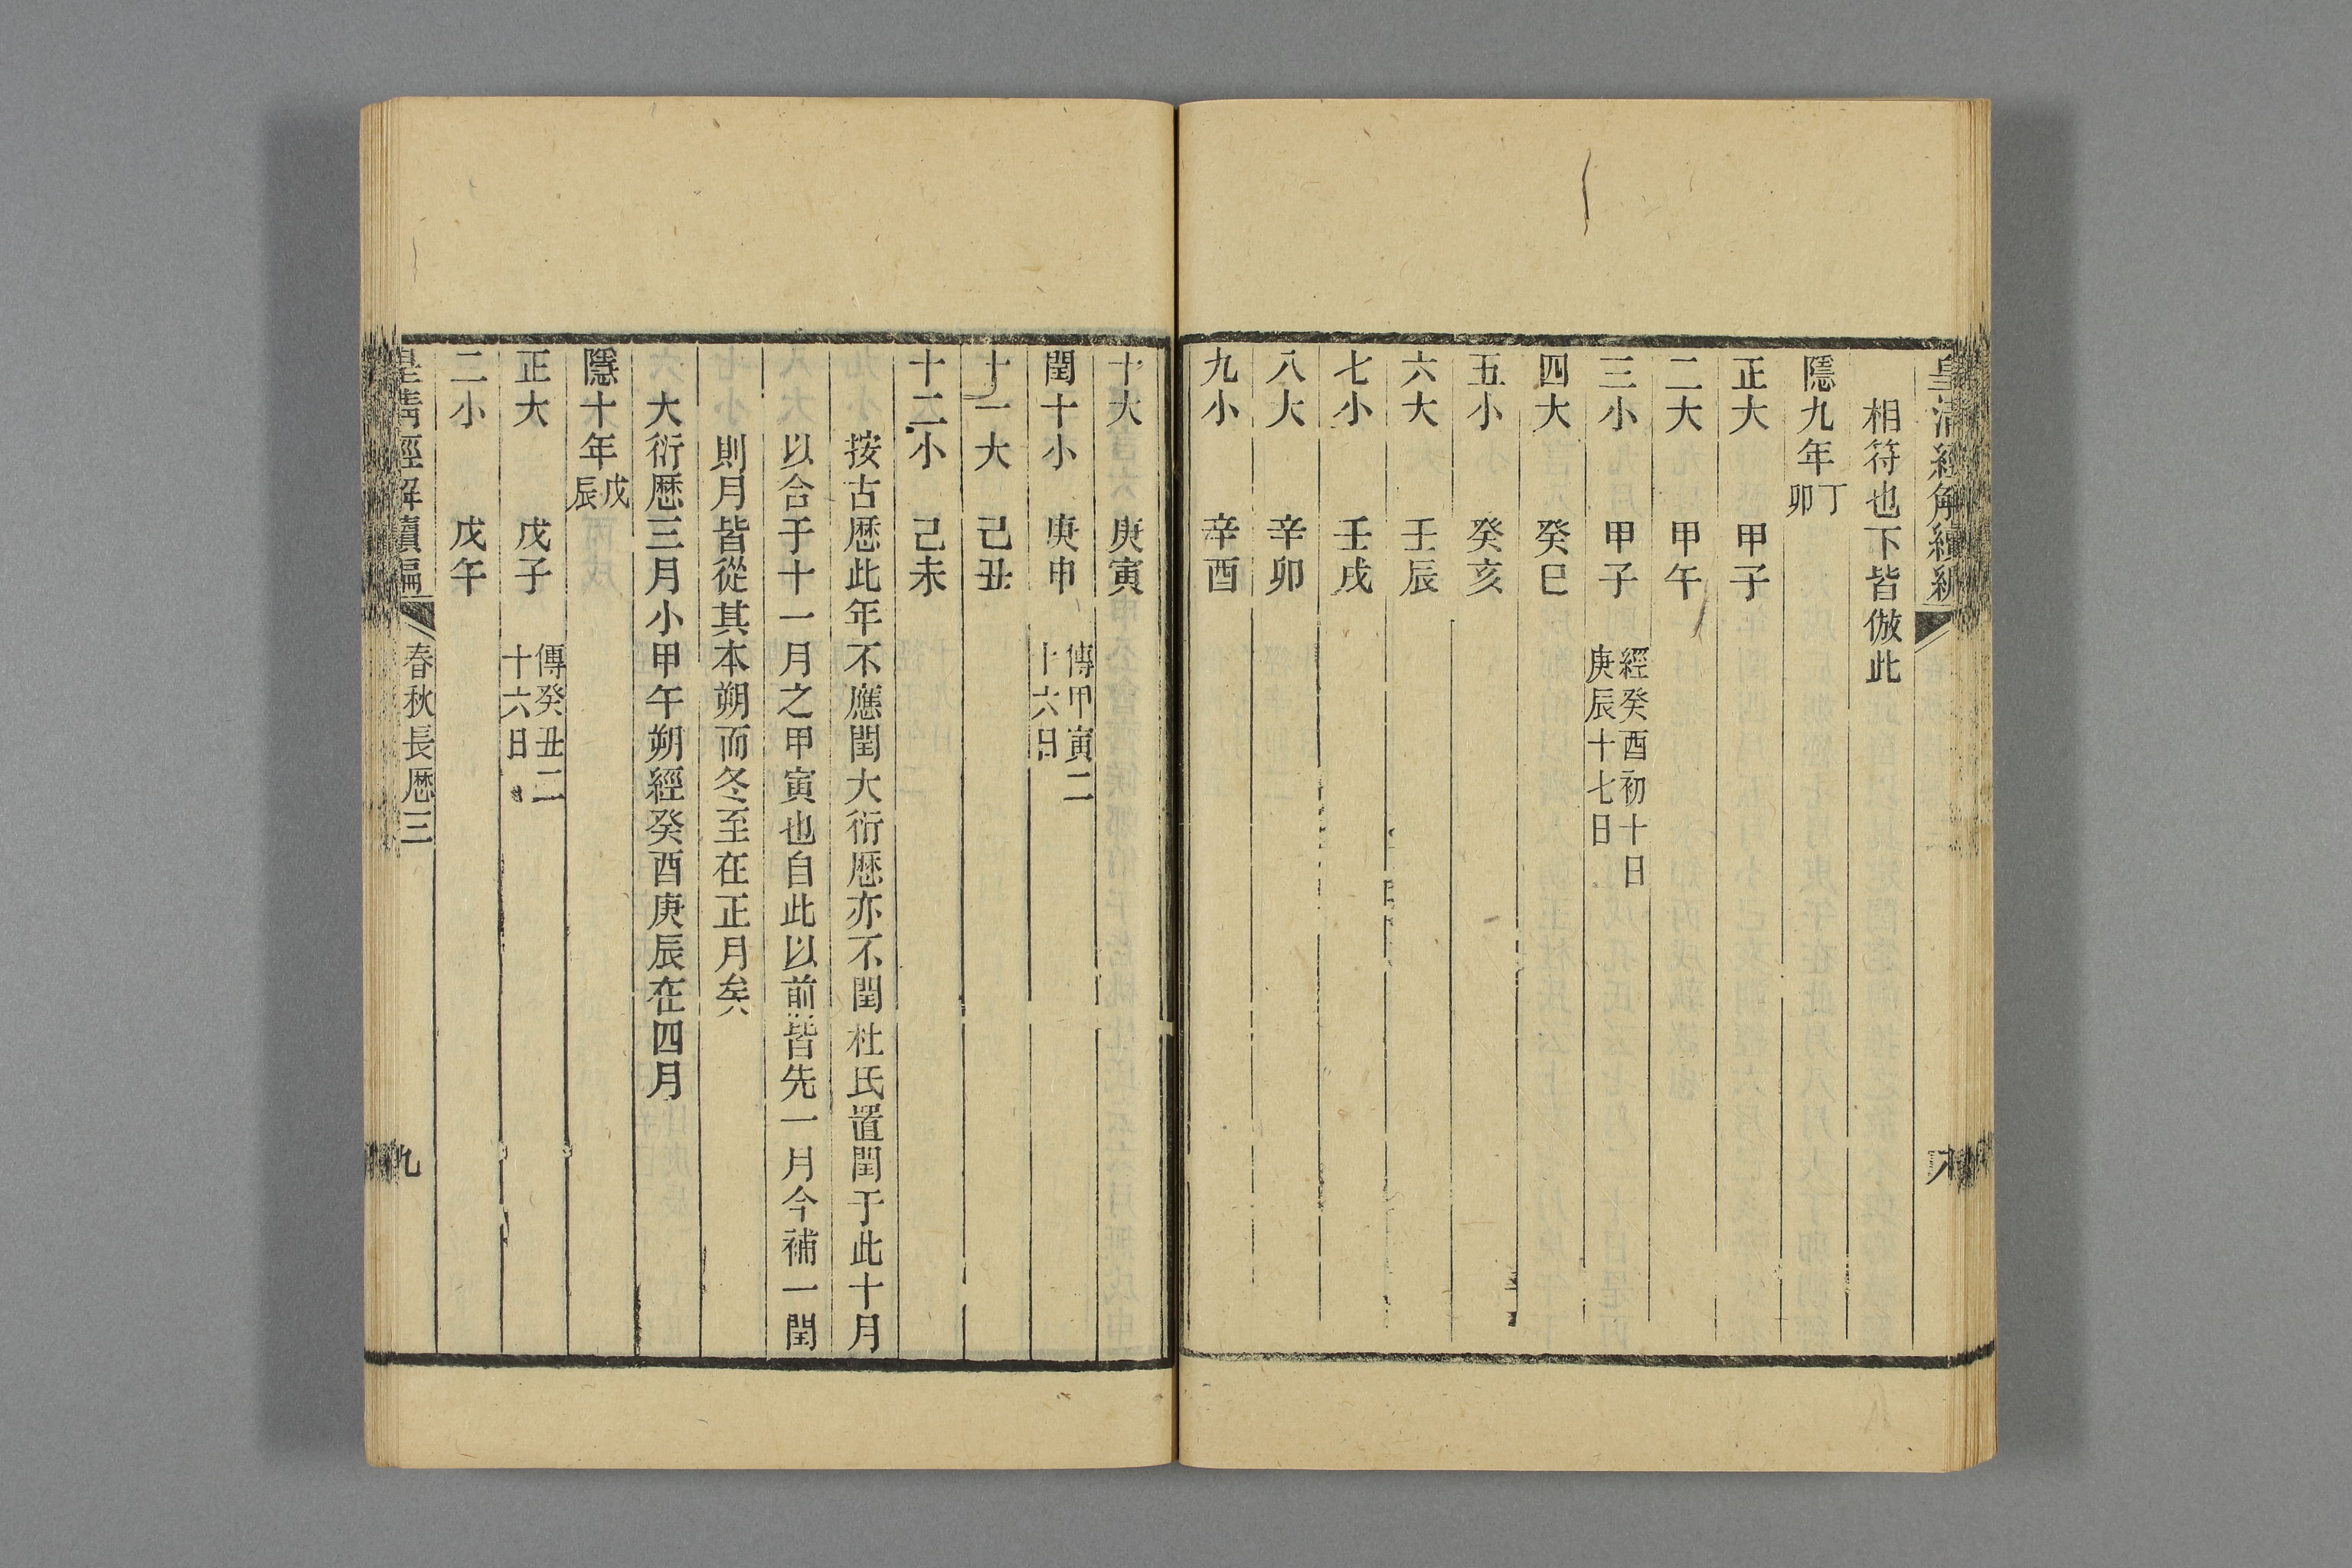 皇清經解續編
相符也下皆倣此
隱九年丁卯
正大　甲子
二大　甲午
三小　甲子　經癸酉初十日庚辰十七日
四大　癸巳
五小　癸亥
六大　壬辰
七小　壬戌
八大　辛卯
九小　辛酉
十大　庚寅
閏十小　庚申　傳甲寅二十六日
十一大　己丑
十二小　己未
按古厯此年不應閏大衍厯亦不閏杜氏置閏于此十月
以合于十一月之甲寅也自此以前皆先一月今補一閏
則月皆從其本朔而冬至在正月矣
大衍厯三月小甲午朔經癸酉庚辰在四月
隱十年戊辰
正大　戊子　傳癸丑二十六日
二小　戊午
皇清經解續編　春秋長厯三　九